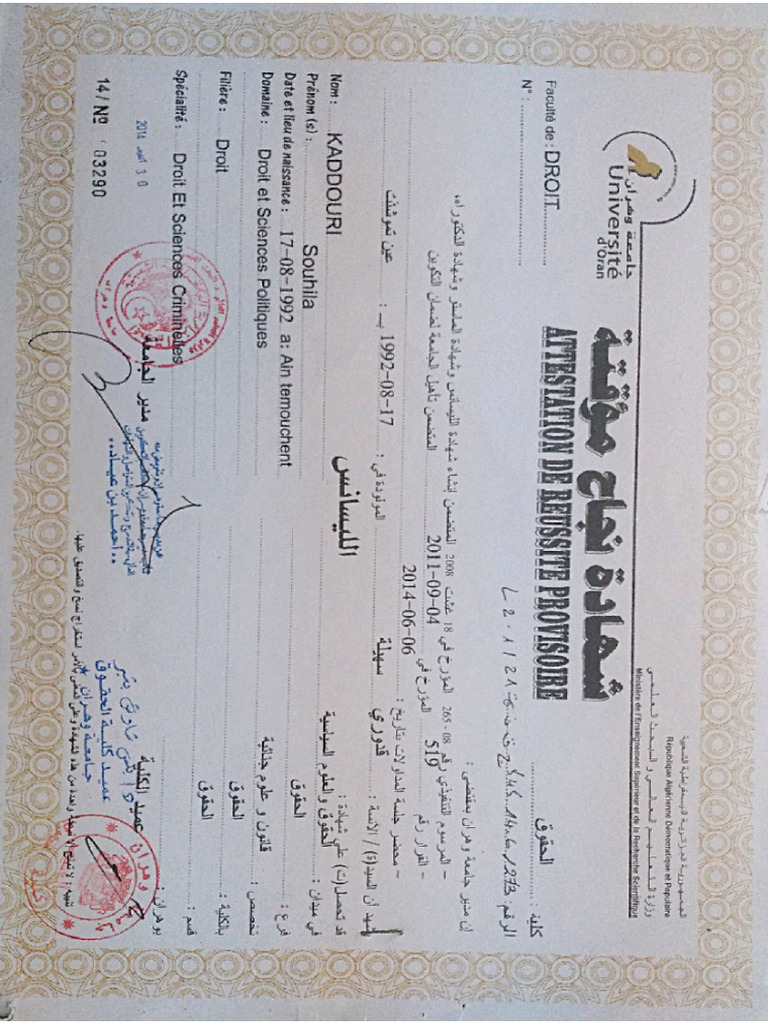 الجمهورية الجزائرية الديمقراطية الشعبية
République Algérienne Démocratique et Populaire
وزارة التعليم العالي و البحث العلمي
Ministère de l'Enseignement Supérieur et de la Recherche Scientifique
جامعة وهران
Université
d'Oran
شهادة نجاح مؤقتة
ATTESTATION DE REUSSITE PROVISOIRE
Faculté de : DROIT
كلية : الحقوق
N° :
الرقم:
إن مدير جامعة وهران بمقتضى :
– المرسوم التنفيذي رقم 08-265 المؤرخ في 18 غشت 2008 المتضمن إنشاء شهادة الليسانس وشهادة الماستر وشهادة الدكتوراه.
القرار رقم 519 المؤرخ في 2011-09-04 المتضمن تأهيل الجامعة لضمان التكوين
– محضر جلسة المداولات بتاريخ : 2014-06-06
يشهد أن السيد(ة) / الآنسة قدوري سهيلة المولودة في : 17-08-1992 بـ : عين تموشنت
قد تحصل(ت) على شهادة : الليسانس
Nom : KADDOURI
في ميدان : الحقوق والعلوم السياسية
Prénom (s) : Souhila
فرع : الحقوق
Date et lieu de naissance : 17-08-1992 a: Ain temouchent
تخصص : قانون و علوم جنائية
Domaine : Droit et Sciences Politiques
بالكلية : الحقوق
Filière : Droit
قسم : الحقوق
Spécialité : Droit Et Sciences Criminelles
بوهران :
عميد الكلية
مدير الجامعة
عميد كلية الحقوق
جامعة وهران
أحمد بن عيـاد
14/№ 03290
تنبيه : لا تمنح إلا نسخة واحدة من هذه الشهادة وعلى المعني بالأمر استخراج نسخ والتصديق عليها.